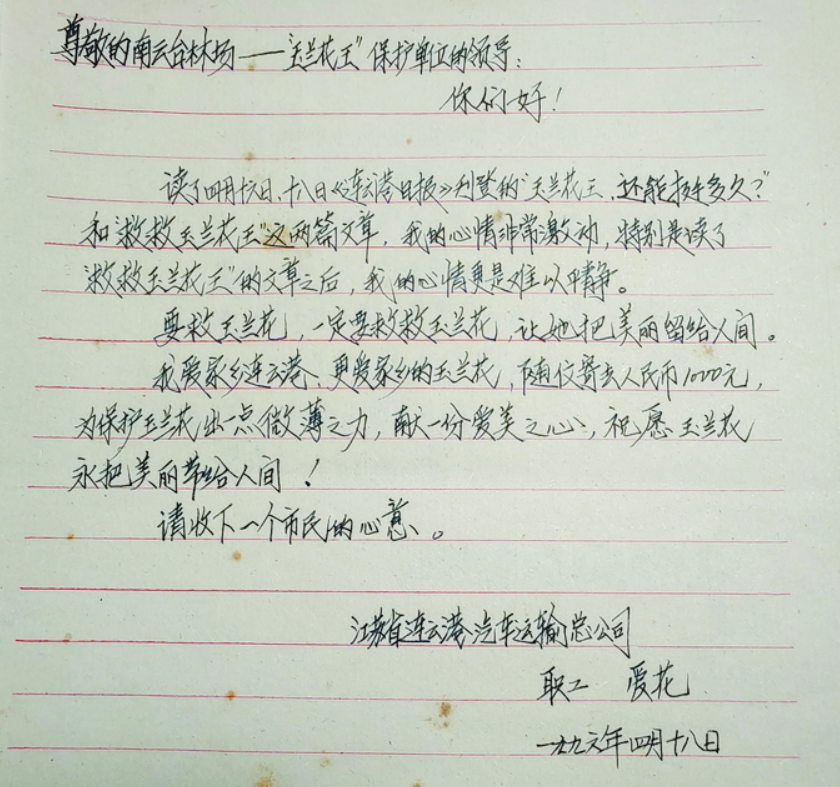 尊敬的南云台林场——“玉兰花王”保护单位的领导：
你们好！
读了四月六日、十八日《连云港日报》刊登的“玉兰花王，还能支撑多久？”
和“救救玉兰花王”这两篇文章，我的心情非常激动，特别是读了
“救救玉兰花王”的文章之后，我的心情更是难以平静。
要救玉兰花，一定要救救玉兰花，让她把美丽留给人间。
我爱家乡连云港，更爱家乡的玉兰花，随信寄去人民币1000元，
为保护玉兰花出一点微薄之力，献一份爱美之心，祝愿玉兰花
永把美丽带给人间！
请收下一个市民的心意。
江苏省连云港汽车运输总公司
职工 爱花
一九九六年四月十八日